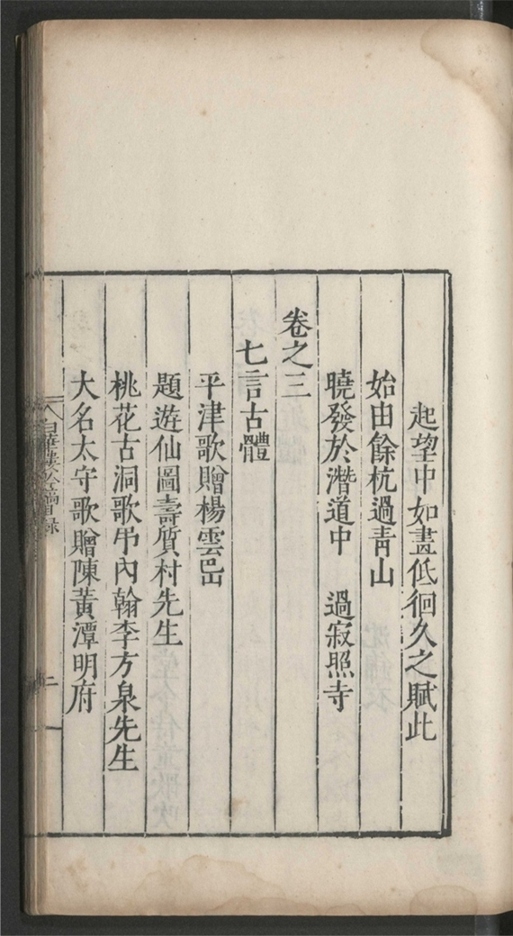 起望中如畫低徊久之賦此
始由餘杭過青山
曉發於潛道中　過寂照寺
卷之三
七言古體
平津歌贈楊雲嵒
題遊仙圖壽質村先生
桃花古洞歌弔內翰李方泉先生
大名太守歌贈陳黃潭明府
二